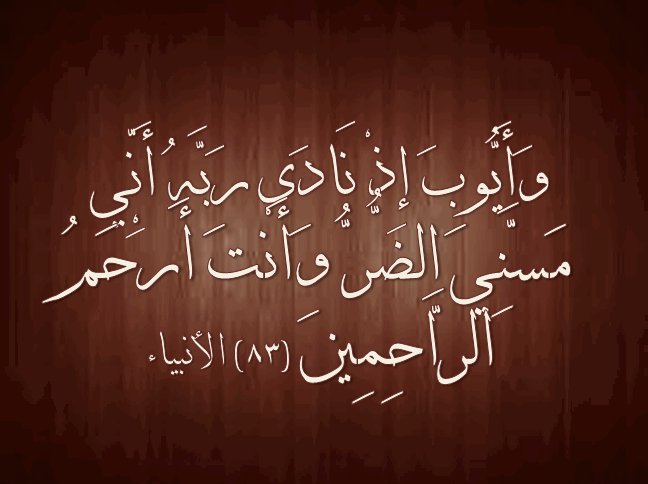 وَأَيُّوبَ إِذْ نَادَى رَبَّهُ أَنِّي
مَسَّنِيَ الضُّرُّ وَأَنْتَ أَرْحَمُ
الرَّاحِمِينَ (٨٣) الأنبياء